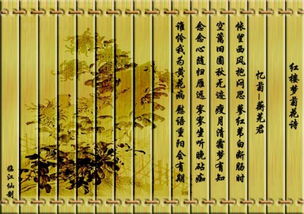 红楼梦菊花诗
忆菊—蘅芜君
怅望西风抱闷思 蓼红苇白断肠时
空篱旧圃秋无迹 瘦月清霜梦有知
念念心随归雁远 寥寥坐听晚砧痴
谁怜我为黄花病 慰语重阳会有期
临江仙制